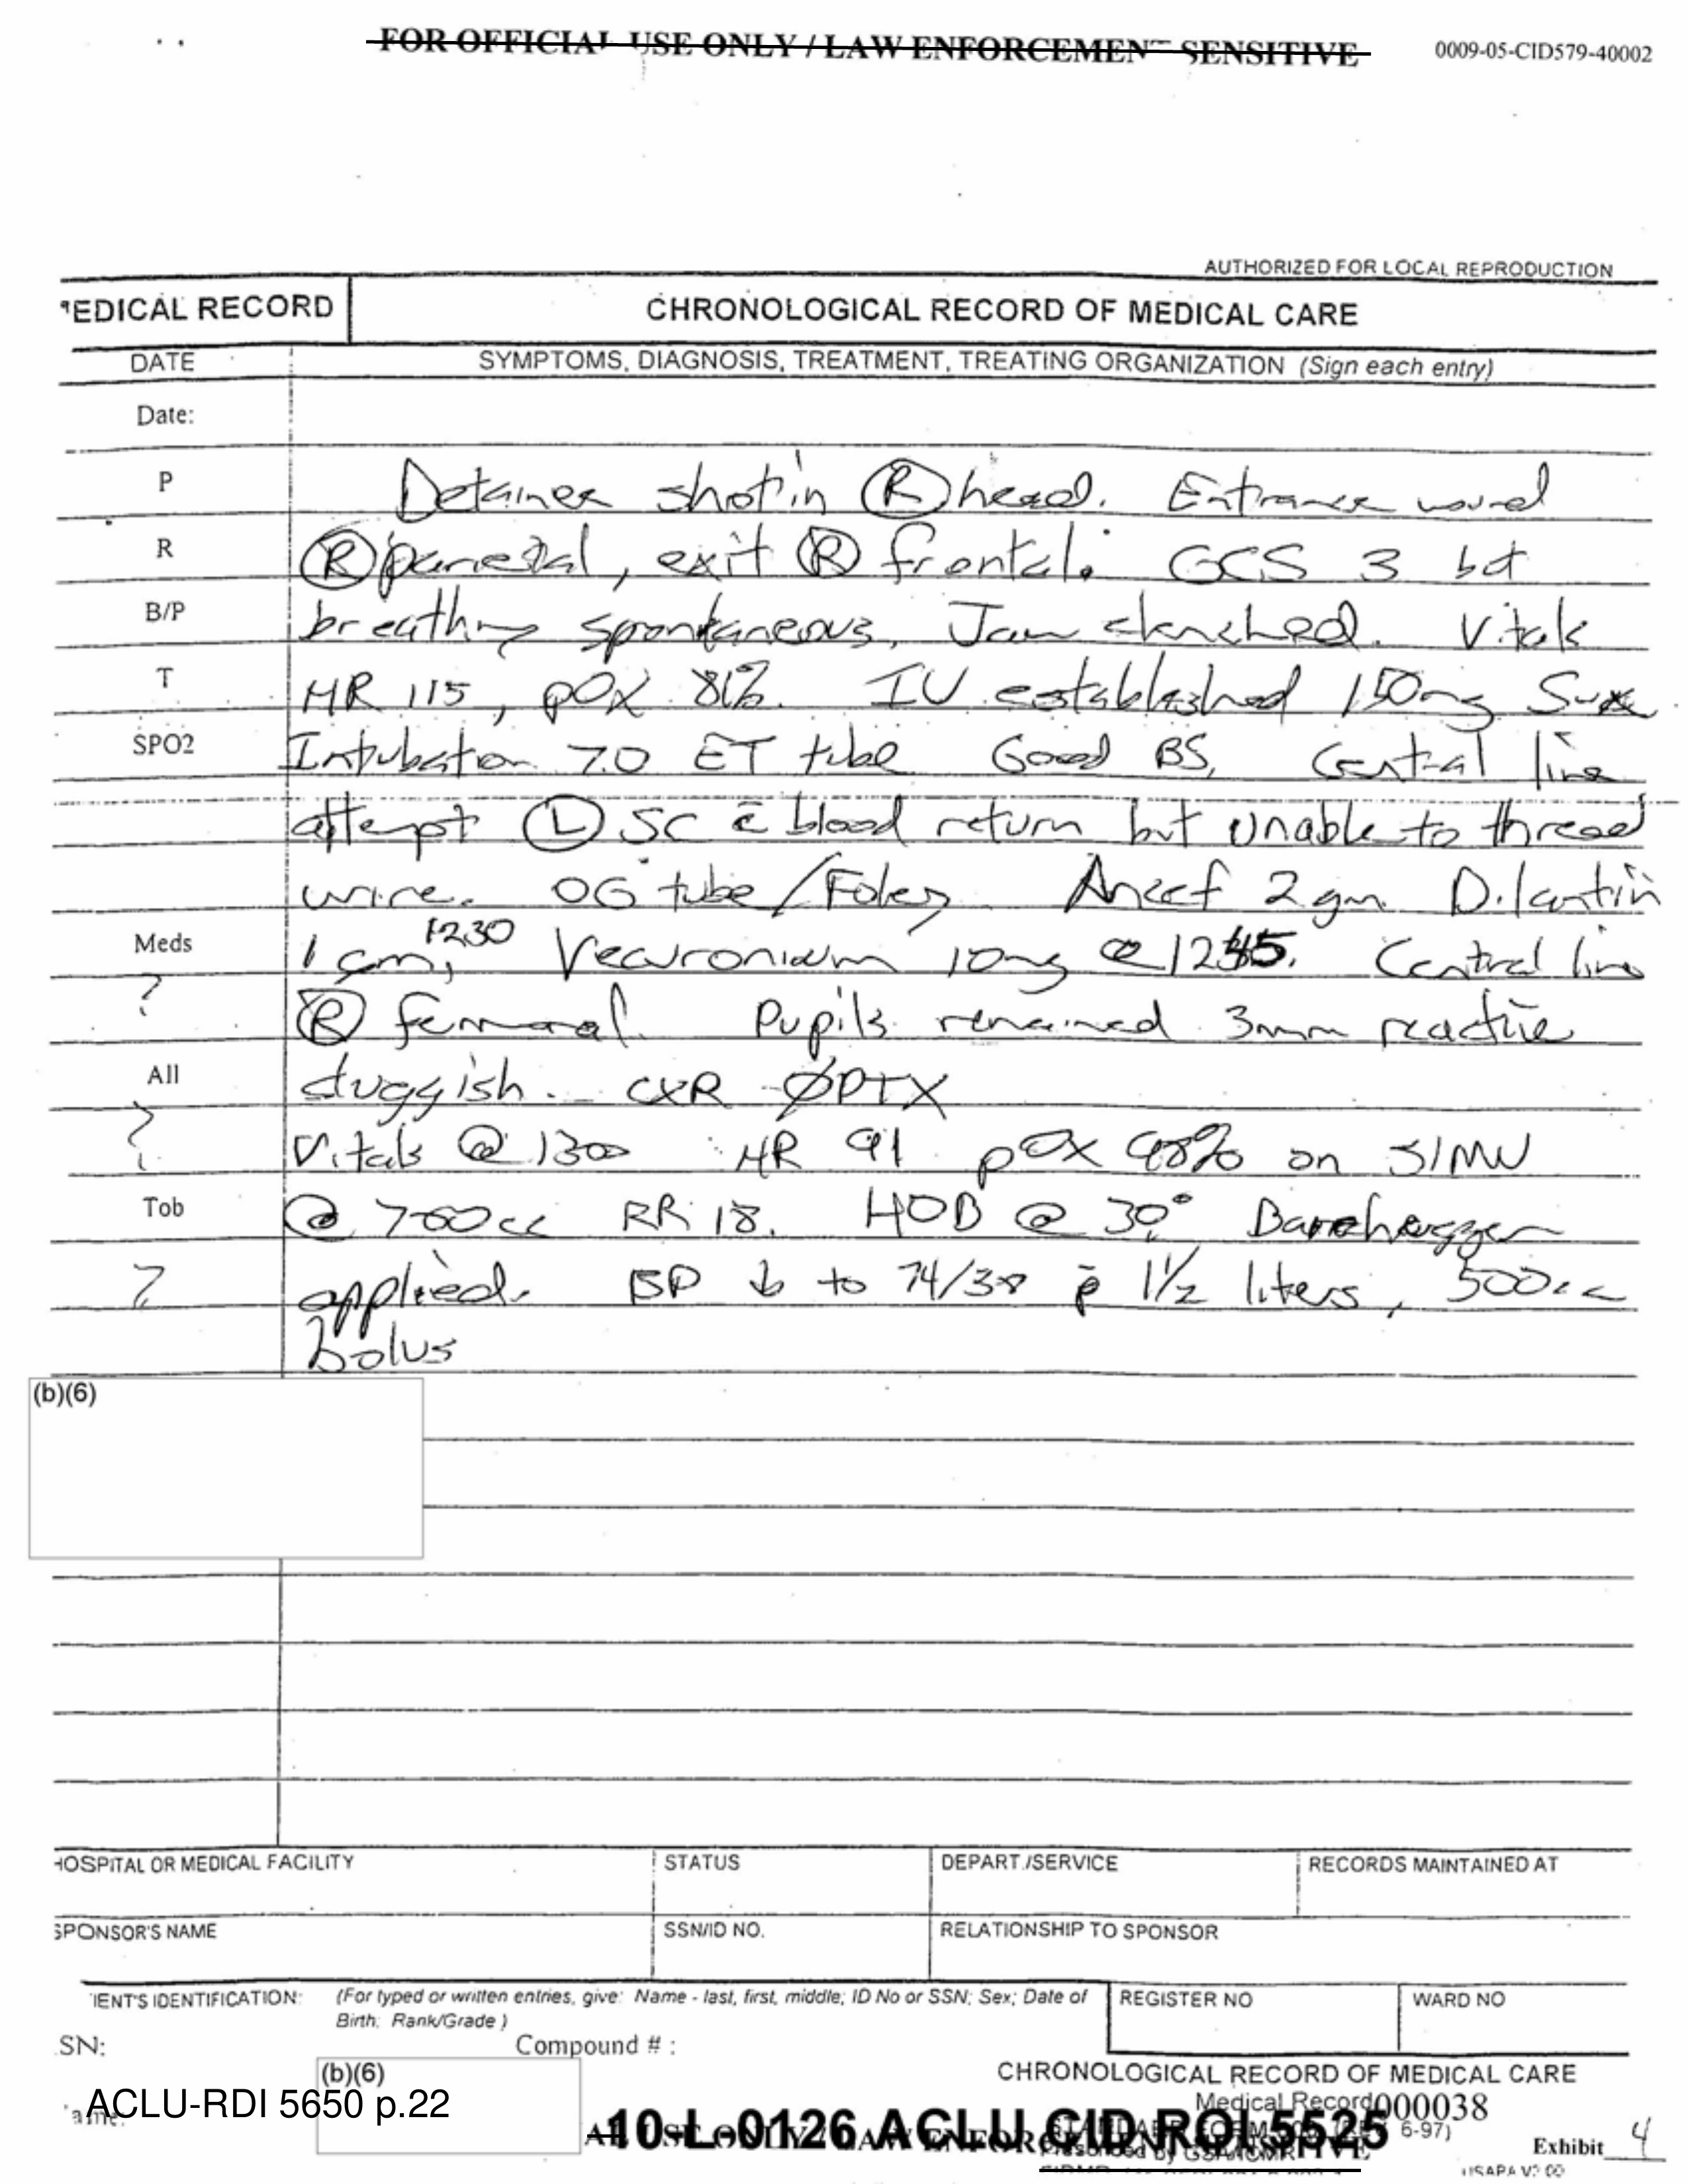 FOR OFFICIAL USE ONLY / LAW ENFORCEMENT SENSITIVE 0009-05-CID579-40002
AUTHORIZED FOR LOCAL REPRODUCTION
EDICAL RECORD CHRONOLOGICAL RECORD OF MEDICAL CARE
DATE SYMPTOMS, DIAGNOSIS, TREATMENT, TREATING ORGANIZATION (Sign each entry)
Date:
P Detainee shot in Ⓡ head. Entrance wound
R Ⓡ parietal, exit Ⓡ frontal. GCS 3 but
B/P breathing spontaneous, Jaw clenched. Vitals
T HR 115, pOX 81%. IV established 150mg Sux
SPO2 Intubation 7.0 ET tube Good BS, Central line
attempt Ⓛ SC c̄ blood return but unable to thread
wire. OG tube/Foley Ancef 2gm Dilantin
Meds 1 gm, 1230 Vecuronium 10mg @ 1245. Central line
? Ⓡ femoral. Pupils remained 3mm reactive
All sluggish. CXR ØPTX
? Vitals @ 1300 HR 91 pOX 98% on SIMV
Tob @ 700cc RR 18. HOB @ 30° Barehugger
? applied. BP ↓ to 74/38 p̄ 1½ liters, 500cc
bolus
(b)(6)
HOSPITAL OR MEDICAL FACILITY STATUS DEPART./SERVICE RECORDS MAINTAINED AT
SPONSOR'S NAME SSN/ID NO. RELATIONSHIP TO SPONSOR
IENT'S IDENTIFICATION: (For typed or written entries, give: Name - last, first, middle; ID No or SSN; Sex; Date of
Birth; Rank/Grade ) REGISTER NO WARD NO
SN: Compound # :
(b)(6) CHRONOLOGICAL RECORD OF MEDICAL CARE
ACLU-RDI 5650 p.22 Medical Record 000038
10-L-0126 ACLU CID ROI 5525 6-97)
Exhibit 4
USAPA V2.00